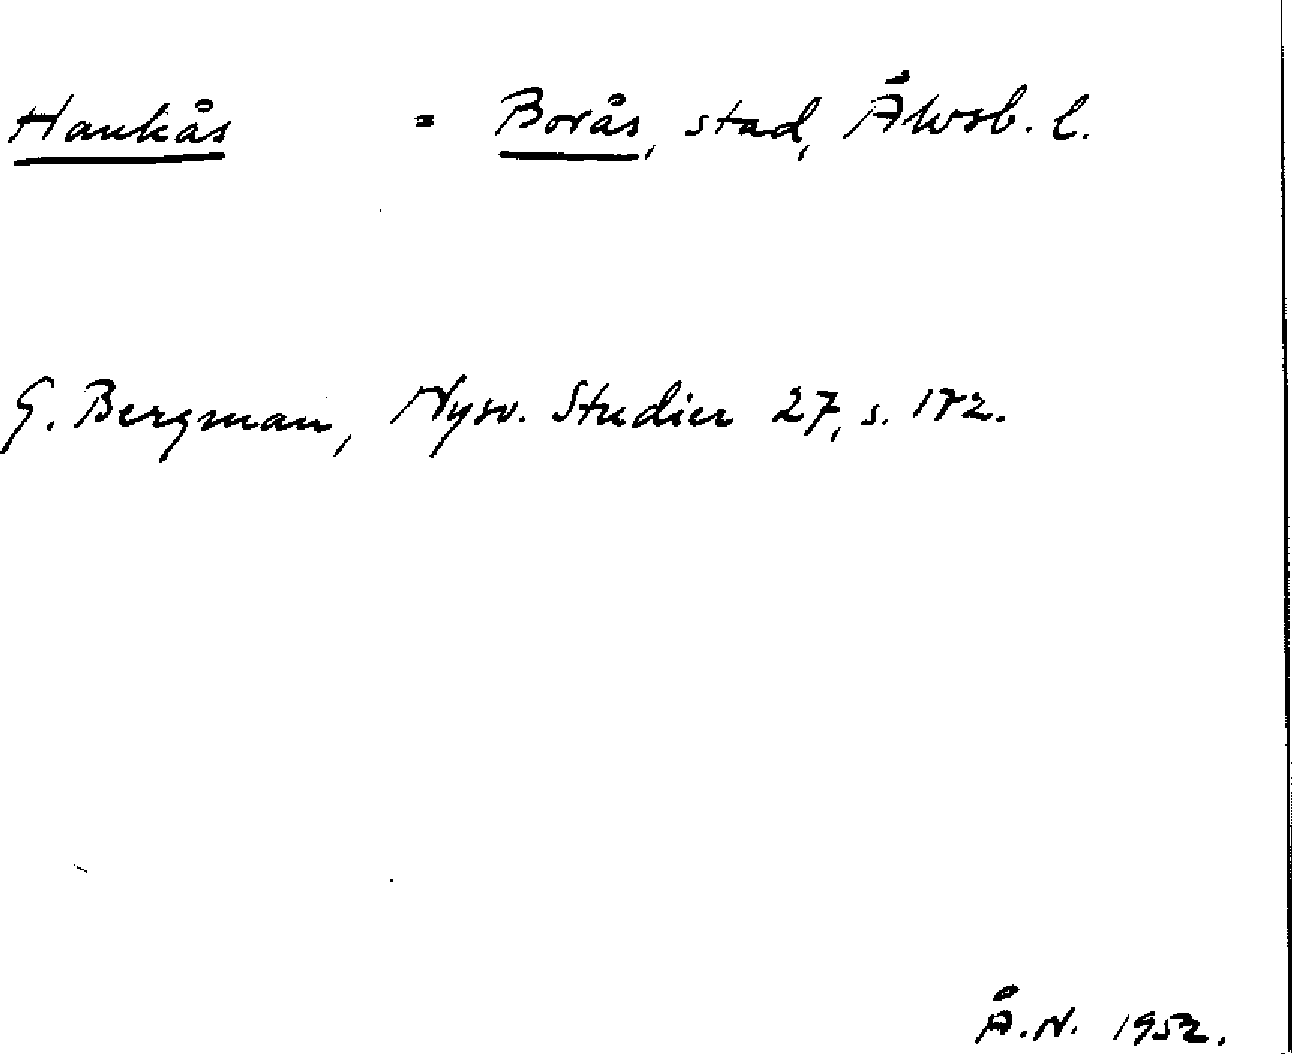 Hankås = Borås, stad, Älvsb. l.
G. Bergman, Nysv. Studier 27, s. 172.
Å.N. 1952.